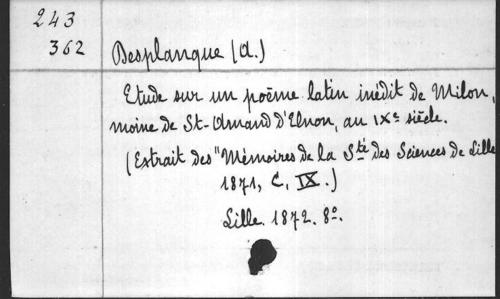 243
362
Desplanque (A.)
Etude sur un poëme latin inédit de Milon,
moine de St-Amand d'Elnon, au IXe siècle.
(Extrait des "Mémoires de la Sté des Sciences de Lille
1871, C, IX.)
Lille. 1872. 8º.